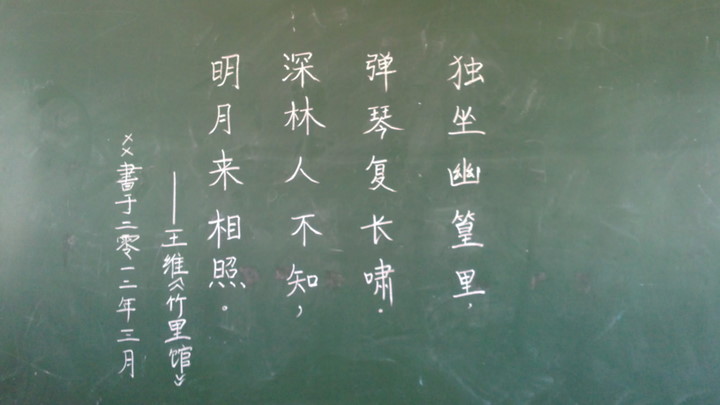 独坐幽篁里，
弹琴复长啸。
深林人不知，
明月来相照。
——王维《竹里馆》
××書于二零一二年三月